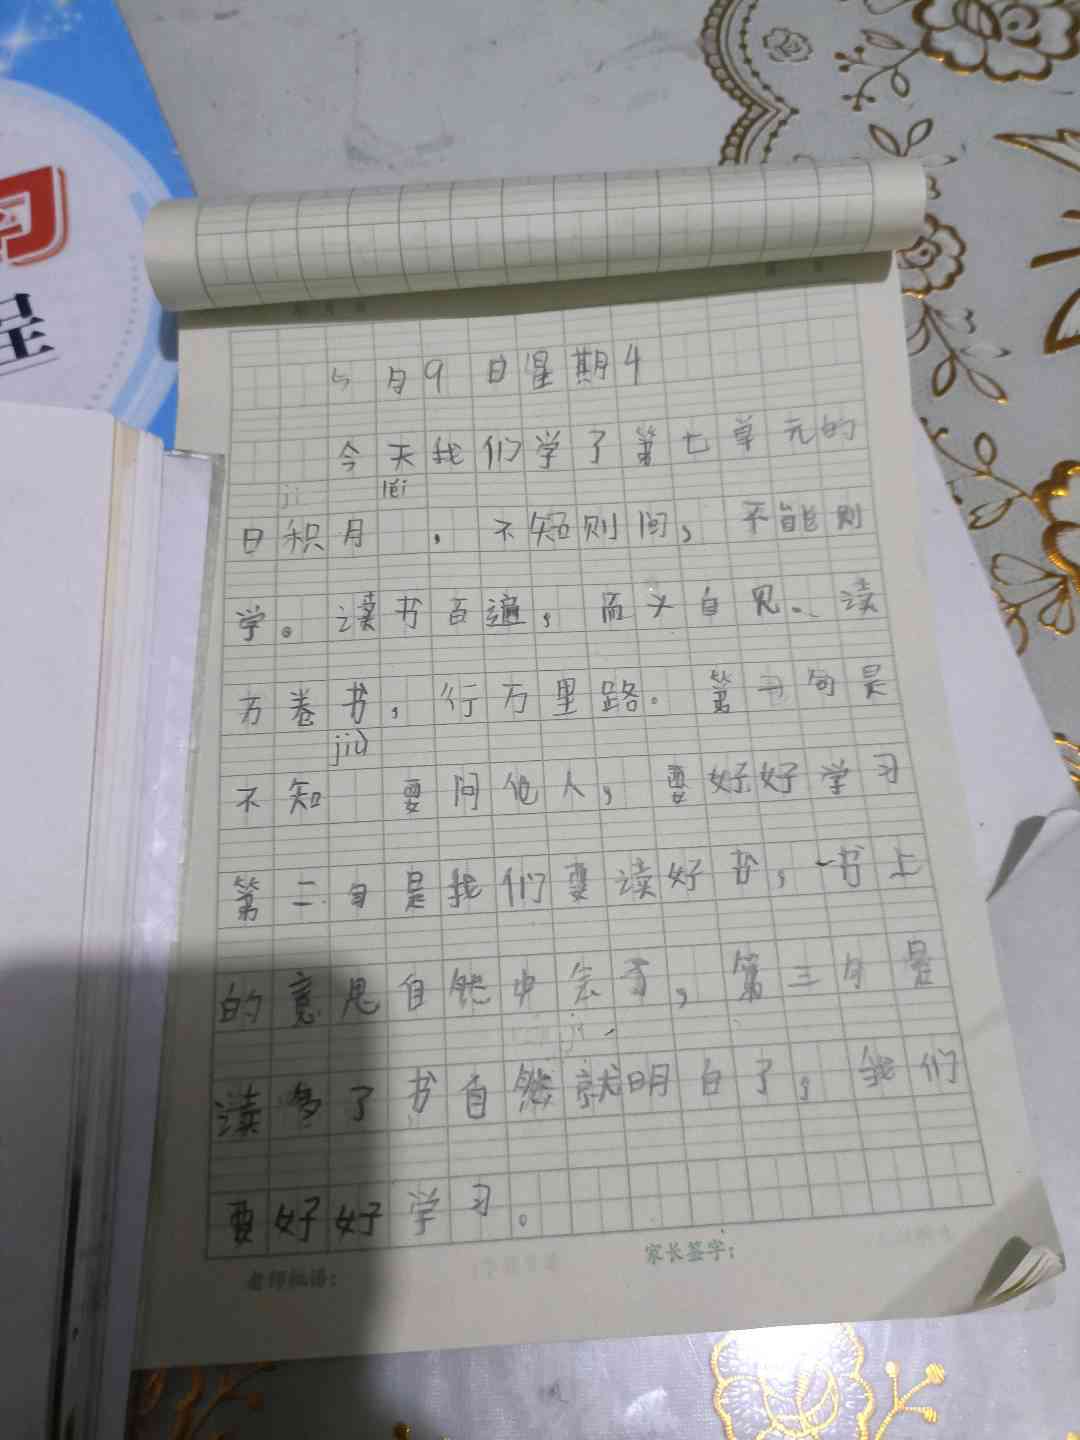 习
程
5月9日星期4
今天我们学了第七单元的
jī lěi
日积月,不知则问,不能则
学。读书百遍,而义自见。读
万卷书,行万里路。第一句是
jiù
不知 要问他人,要好好学习
第二句是我们要读好书,书上
的意思自然中会了,第三句是
读多了书自然就明白了,我们
要好好学习。
老师批语:
家长签字: